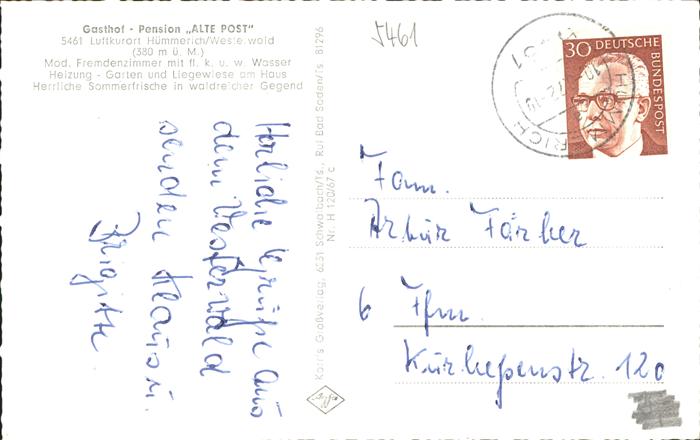 Gasthof - Pension „ALTE POST"
5461 Luftkurort Hümmerich/Westerwald
(380 m ü. M.)
Mod. Fremdenzimmer mit fl. k. u. w. Wasser
Heizung - Garten und Liegewiese am Haus
Herrliche Sommerfrische in waldreicher Gegend
5461
30 DEUTSCHE
BUNDESPOST
Herliche Grüße aus
dem Westerwald
senden Klaus u.
Brigitte.
Großverlag, 6231 Schwalbach/Ts., Ruf Bad Soden/Ts. 81296
Nr. H 120/67 c
Fam.
Artur Färber
6 Ffm.
Kurhessenstr. 120